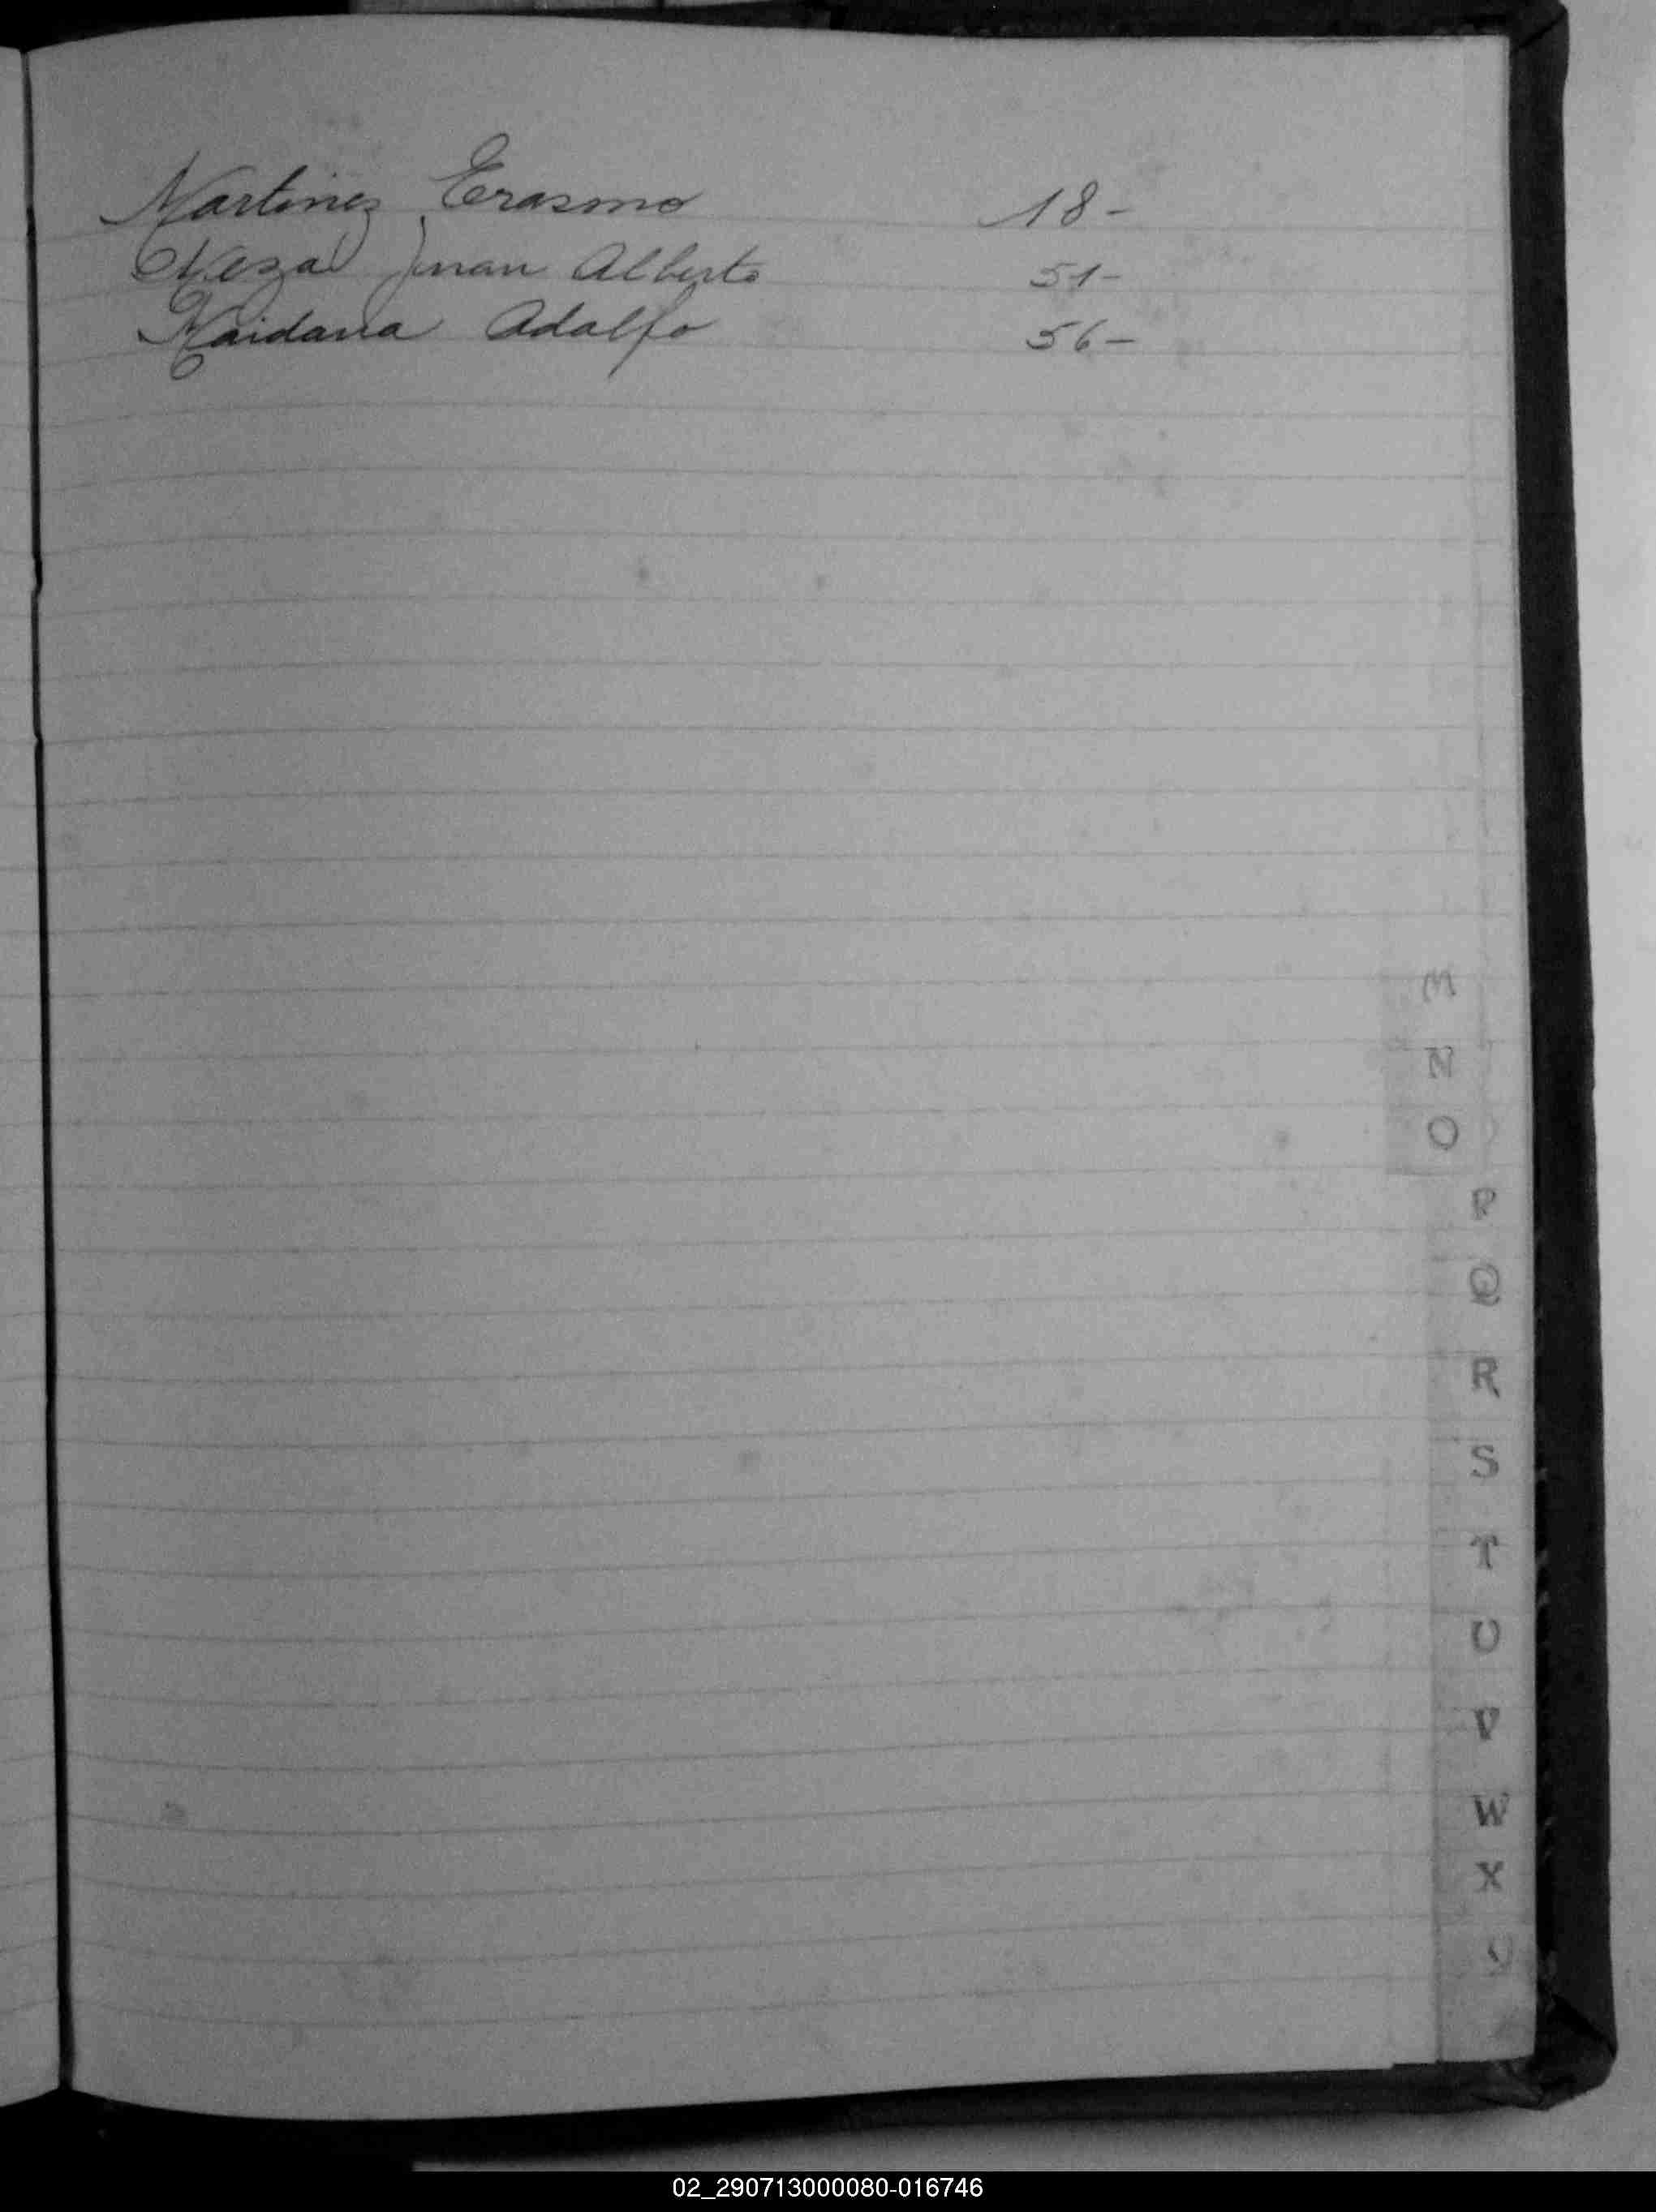 Martinez Erasmo 18-
Meza Juan Alberto 51-
Maidana Adolfo 56-
M
N
O
P
Q
R
S
T
U
V
W
X
Y
02_290713000080-016746